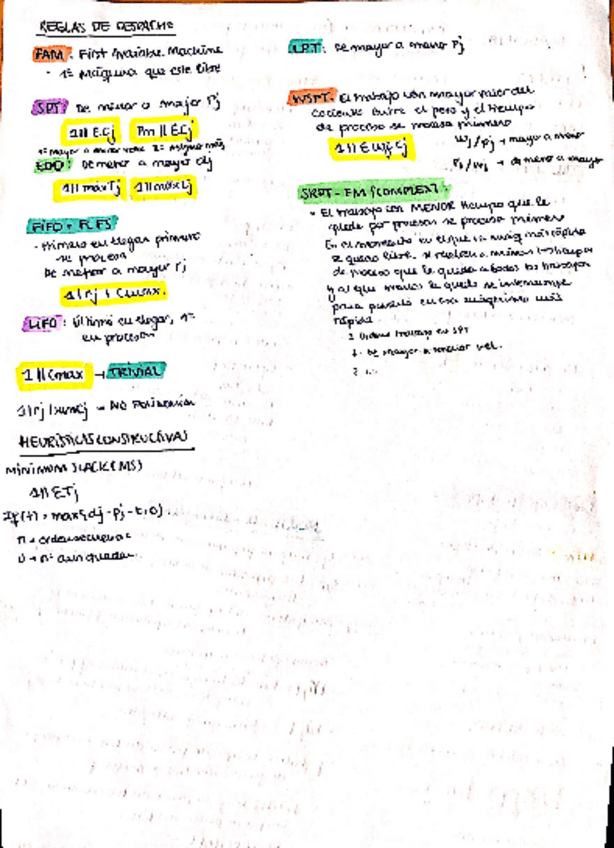 REGLAS DE DESPACHO
FAM: First Available Machine
- 1ª máquina que esté libre
SPT: De menor a mayor Pj
1||ΣCj Pm||ΣCj
EDD: De menor a mayor dj
1||máxTj 1||máxLj
FIFO = FCFS
- Primero en llegar primero
se procesa
De menor a mayor rj
1|rj|Cmax.
LIFO: Último en llegar, 1º
en procesar
1||Cmax → TRIVIAL
1|rj|sumCj → NO Polinomial
HEURÍSTICAS CONSTRUCTIVAS
MINIMUM SLACK (MS)
1||ΣTj
máx{dj - Pj - t, 0}
LPT: De mayor a menor Pj
WSPT: El trabajo con mayor valor del
cociente entre el peso y el tiempo
de proceso se procesa primero
1||ΣwjCj wj/pj → mayor a menor
Pj/wj → de menor a mayor
SRPT-FM (COMPLEX):
• El trabajo con MENOR tiempo que le
quede por procesar se procesa primero
En el momento en el que la máq más rápida
se queda libre, se
de proceso que le queda a todos los trabajos
y al que menos le quede se interrumpe
para pasarlo en esa máquina más
rápida.
trabajo en SPT
De mayor a menor vel.